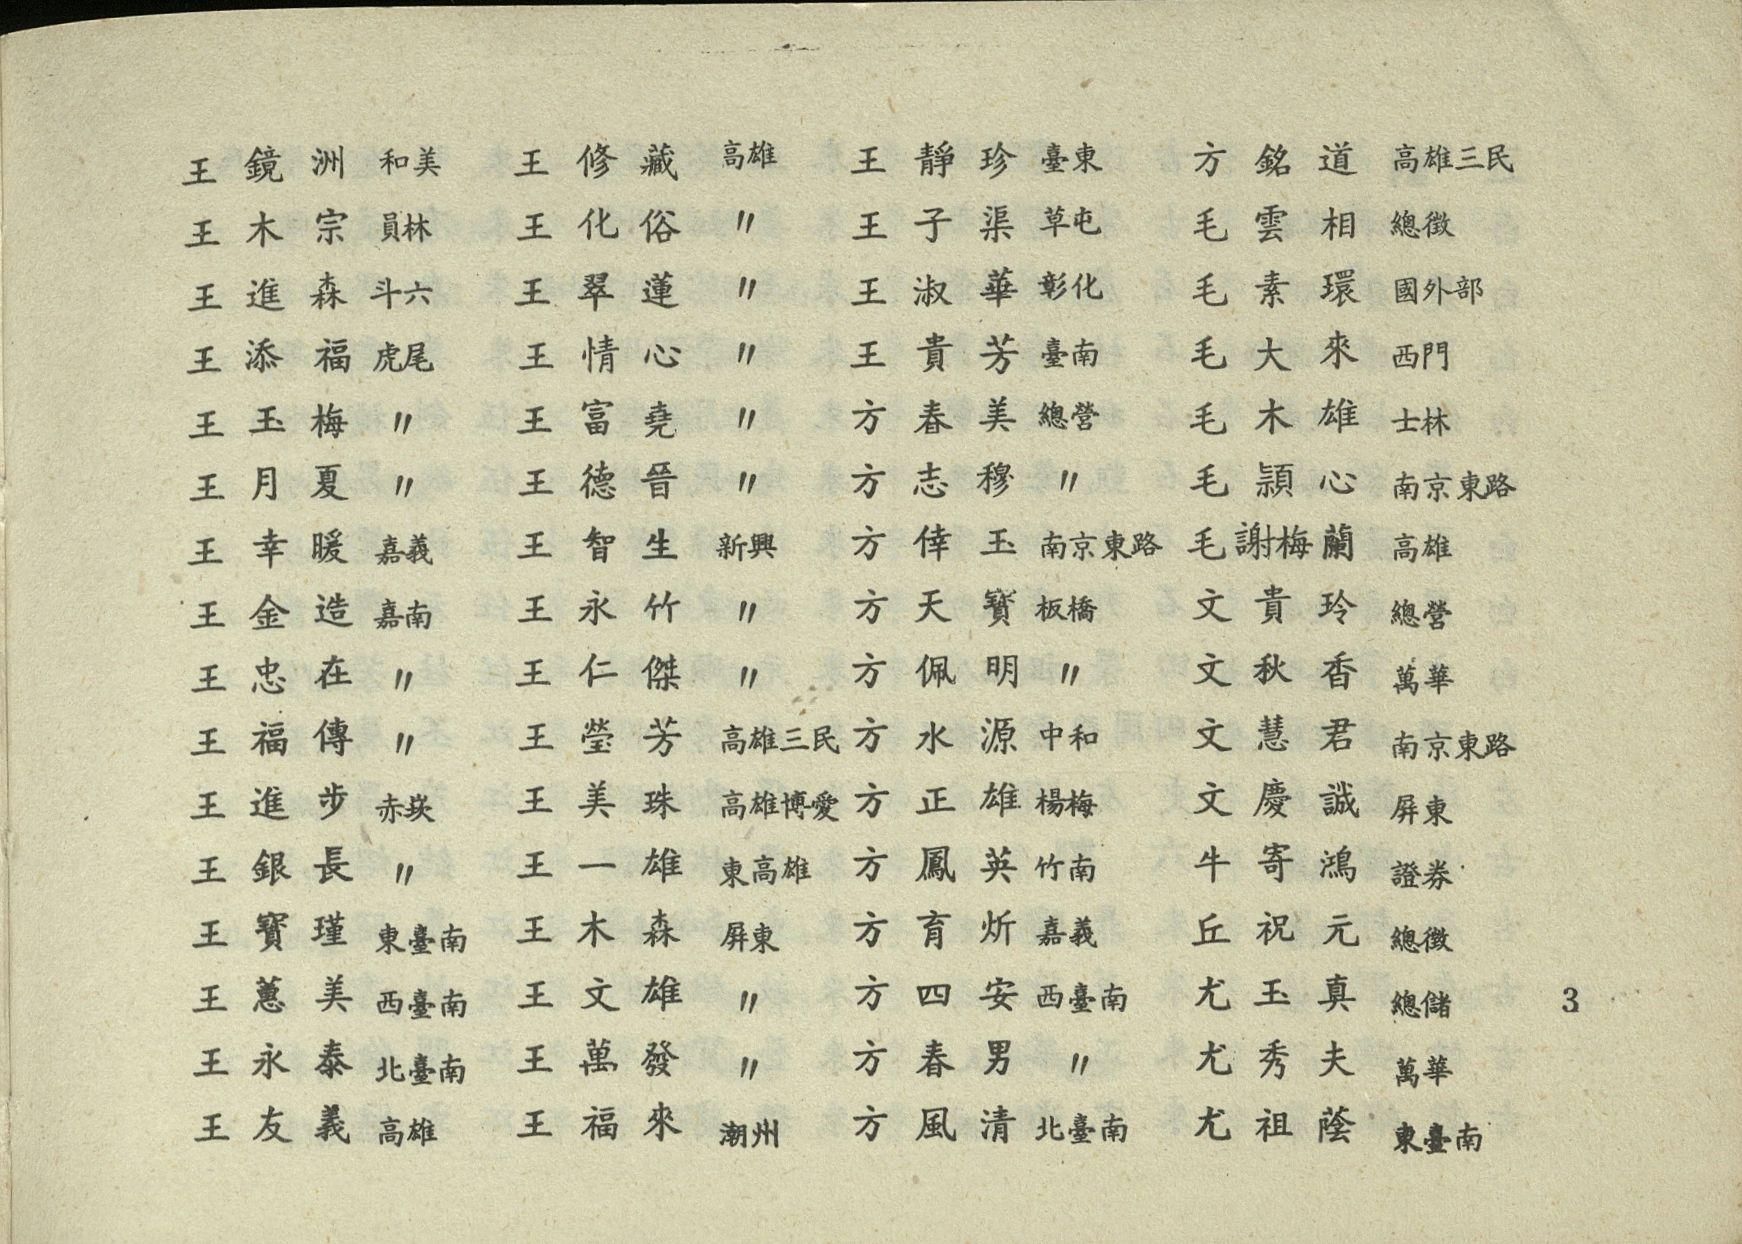 王鏡洲 和美
王木宗 員林
王進森 斗六
王添福 虎尾
王玉梅 〃
王月夏 〃
王幸暖 嘉義
王金造 嘉南
王忠在 〃
王福傳 〃
王進步 赤崁
王銀長 〃
王寶瑾 東臺南
王蕙美 西臺南
王永泰 北臺南
王友義 高雄
王修藏 高雄
王化俗 〃
王翠蓮 〃
王情心 〃
王富堯 〃
王德晉 〃
王智生 新興
王永竹 〃
王仁傑 〃
王瑩芳 高雄三民
王美珠 高雄博愛
王一雄 東高雄
王木森 屏東
王文雄 〃
王萬發 〃
王福來 潮州
王靜珍 臺東
王子渠 草屯
王淑華 彰化
王貴芳 臺南
方春美 總營
方志穆 〃
方倖玉 南京東路
方天寶 板橋
方佩明 〃
方水源 中和
方正雄 楊梅
方鳳英 竹南
方育炘 嘉義
方四安 西臺南
方春男 〃
方風清 北臺南
方銘道 高雄三民
毛雲相 總徵
毛素環 國外部
毛大來 西門
毛木雄 士林
毛頴心 南京東路
毛謝梅蘭 高雄
文貴玲 總營
文秋香 萬華
文慧君 南京東路
文慶誠 屏東
牛寄鴻 證券
丘祝元 總徵
尤玉真 總儲
尤秀夫 萬華
尤祖蔭 東臺南
3